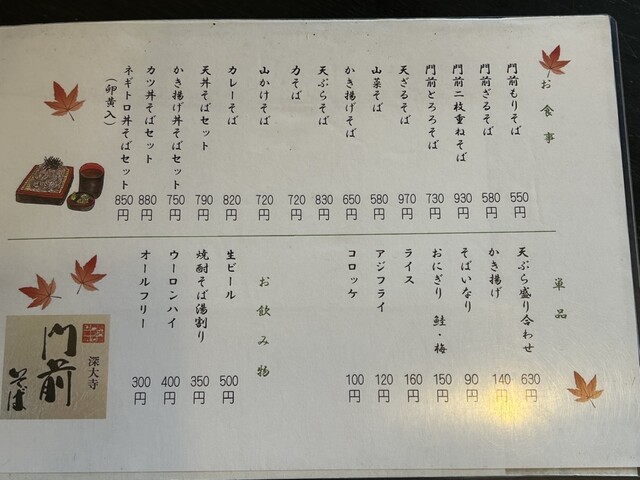 お食事
門前もりそば 550円
門前ざるそば 580円
門前二枚重ねそば 930円
門前とろろそば 730円
天ざるそば 970円
山菜そば 580円
かき揚げそば 650円
天ぷらそば 830円
力そば 720円
山かけそば 720円
カレーそば 820円
天丼そばセット 790円
かき揚げ丼そばセット 750円
カツ丼そばセット 880円
ネギトロ丼そばセット 850円
（卵黄入）
単品
天ぷら盛り合わせ 630円
かき揚げ 140円
そばいなり 90円
おにぎり 鮭・梅 150円
ライス 160円
アジフライ 120円
コロッケ 100円
お飲み物
生ビール 500円
焼酎そば湯割り 350円
ウーロンハイ 400円
オールフリー 300円
深大寺
門前
そば